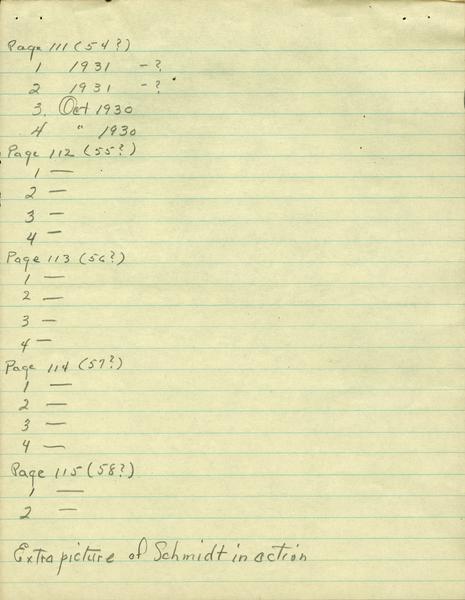 Page 111 (54?)
1 1931 - ?
2 1931 - ?
3. Oct 1930
4 " 1930
Page 112 (55?)
1 —
2 —
3 —
4 —
Page 113 (56?)
1 —
2 —
3 —
4 —
Page 114 (57?)
1 —
2 —
3 —
4 —
Page 115 (58?)
1 —
2 —
Extra picture of Schmidt in action